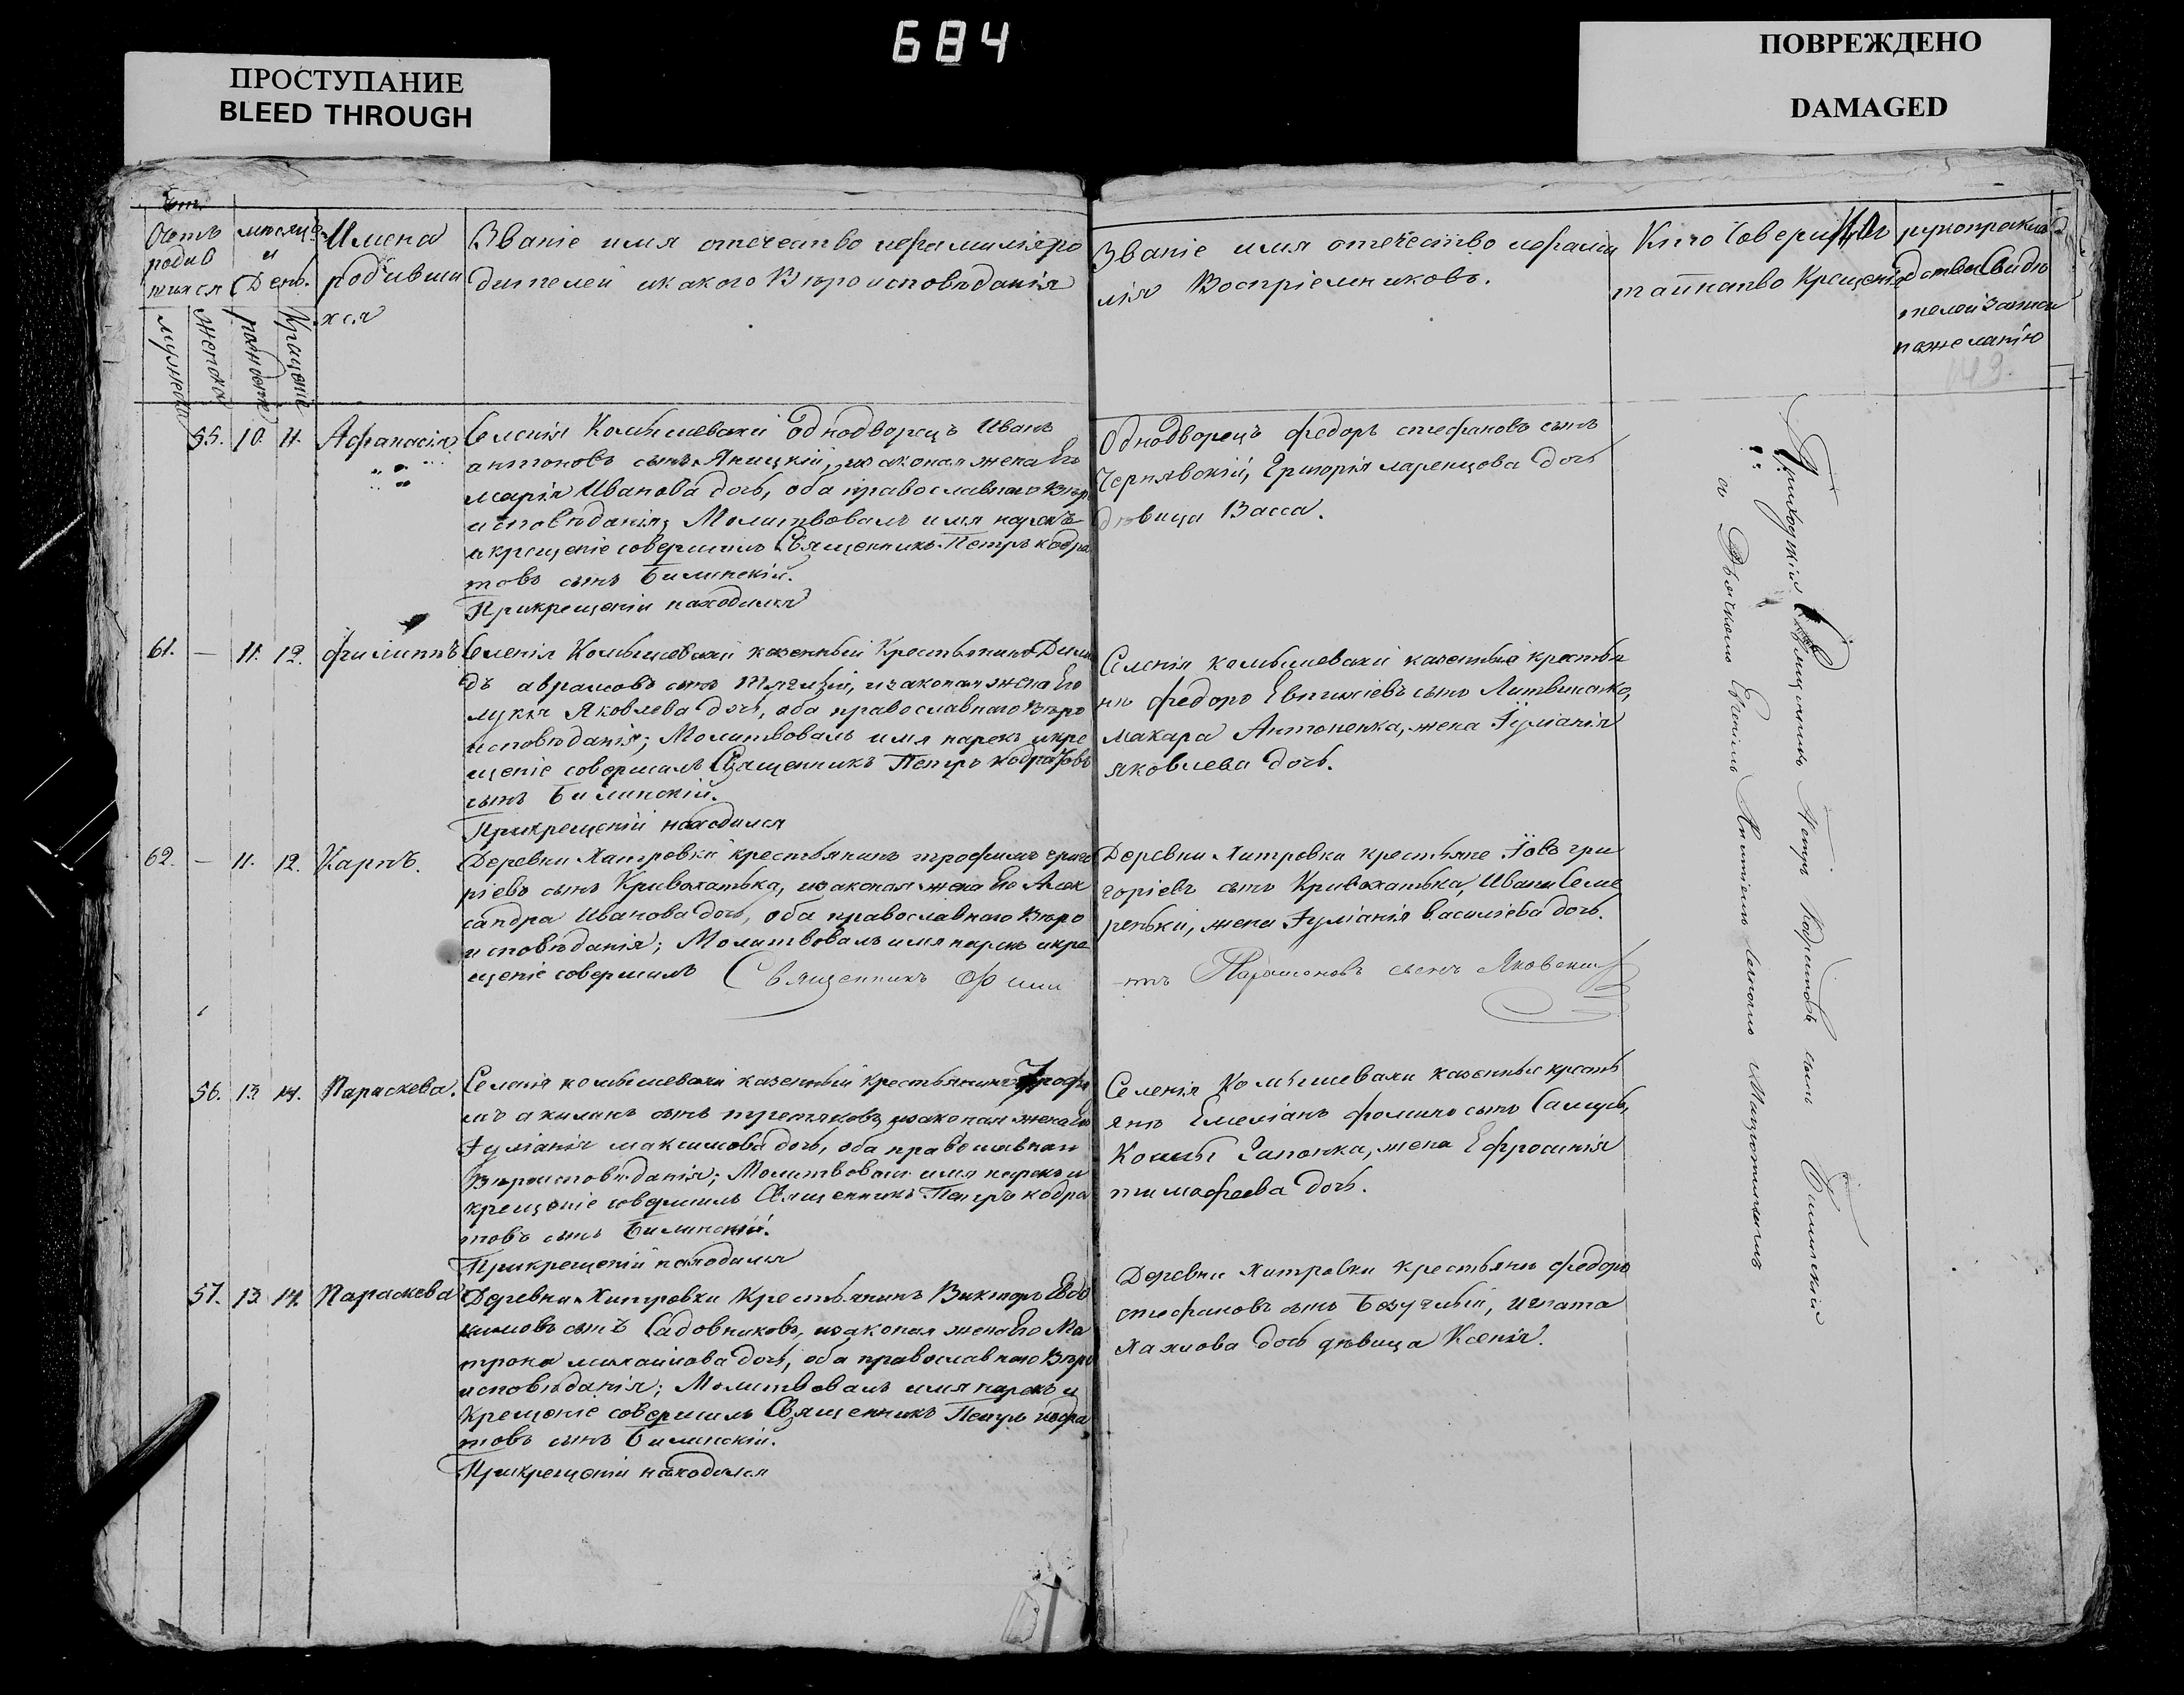 684
ПРОСТУПАНИЕ
BLEED THROUGH
ПОВРЕЖДЕНО
DAMAGED
Счетъ
родив
шихся
мужеска
женска
мѣсяцъ
и
День.
рожденіе
Крещеніе
Имена
родивши
хся
Званіе имя отечество ифамилія ро
дителей икакого Вѣроисповѣданія
Званіе имя отечество ифами
лія Воспріемниковъ.
Кто Совершалъ
таинство Крещенія
рукоприклад
ства Свидѣ
телей записи
пожеланію
143.
55. 10. 11. Афанасія
Селенія Комышевахи Однодворецъ Иванъ
антоновъ сынъ Яницкій, изаконая жена Его
марія Иванова дочь, оба православнаго Вѣро
исповѣданія; Молитвовалъ имя нарекъ
икрещеніе совершилъ Священникъ Петръ кодра
товъ сынъ Билинскій.
Прикрещеніи находился
Однодворецъ федоръ стефановъ сынъ
Чернявскій, Григорія ларенцова дочь
дѣвица Васса.
61. — 11. 12. филиппъ
Селенія Комышевахи казенный Крестьянинъ Деми
дъ аврамовъ сынъ Тяглый, изаконая жена Его
лукія Яковлева дочь, оба православнаго Вѣро
исповѣданія; Молитвовалъ имя нарекъ икре
щеніе совершилъ Священникъ Петръ кодратовъ
сынъ Билинскій.
Прикрещеніи находился
Селенія комышевахи казенные крестья
нъ федоръ Евтихіевъ сынъ Литвиненко,
макара Антоненка, жена Іуліанія
яковлева дочь.
62. — 11. 12. Карпъ.
Деревни Хитровки крестьянинъ трофимъ григо
ріевъ сынъ Кривохатька, изаконая жена Его Алек
сандра Иванова дочь, оба православнаго Вѣро
исповѣданія; Молитвовалъ имя нарекъ икре
щеніе совершилъ Священникъ Фили
Деревни Хитровки крестьяне Іовъ гри
горіевъ сынъ Кривохатька, Ивана Семе
реньки, жена Іуліанія василіева дочь.
-пъ Парамоновъ сынъ Яновский
56. 13 14. Параскева.
Селенія комышевахи казенный крестьянинъ Трофи
мъ акилинъ сынъ третяковъ, изаконая жена Его
Іуліанія максимова дочь, оба православнаго
Вѣроисповѣданія; Молитвовалъ имя нарекъ и
крещеніе совершилъ Священникъ Петръ кодра
товъ сынъ Билинскій.
Прикрещеніи находился
Селенія Комышевахи казенные кресть
янъ Емеліанъ фоминъ сынъ
Козьмы жена Ефросинія
тимофеева дочь.
57. 13. 14. Параскева
Деревни Хитровки Крестьянинъ Викторъ Евдо
кимовъ сынъ Садовниковъ, изаконая жена Его Ма
трона михайлова дочь, оба православнаго Вѣро
исповѣданія; Молитвовалъ имя нарекъ и
Крещеніе совершилъ Священникъ Петръ кодра
товъ сынъ Билинскій.
Прикрещеніи находился
Деревни Хитровки крестьянъ федоръ
стефановъ сынъ Беззубый, игната
дочь дѣвица Ксенія.
Приходскій Священникъ Петръ Кодратовъ сынъ Билинскій
съ Дьячкомъ